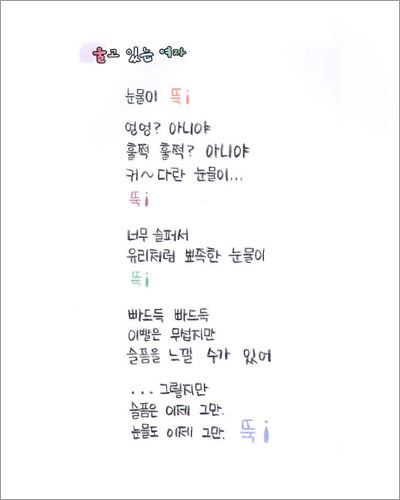 울고 있는 여자
눈물이 뚝!
엉엉? 아니야
훌쩍 훌쩍? 아니야
커~다란 눈물이...
뚝!
너무 슬퍼서
유리처럼 뾰족한 눈물이
뚝!
빠드득 빠드득
이빨은 무섭지만
슬픔을 느낄 수가 있어
...그렇지만
슬픔은 이제 그만.
눈물도 이제 그만. 뚝!